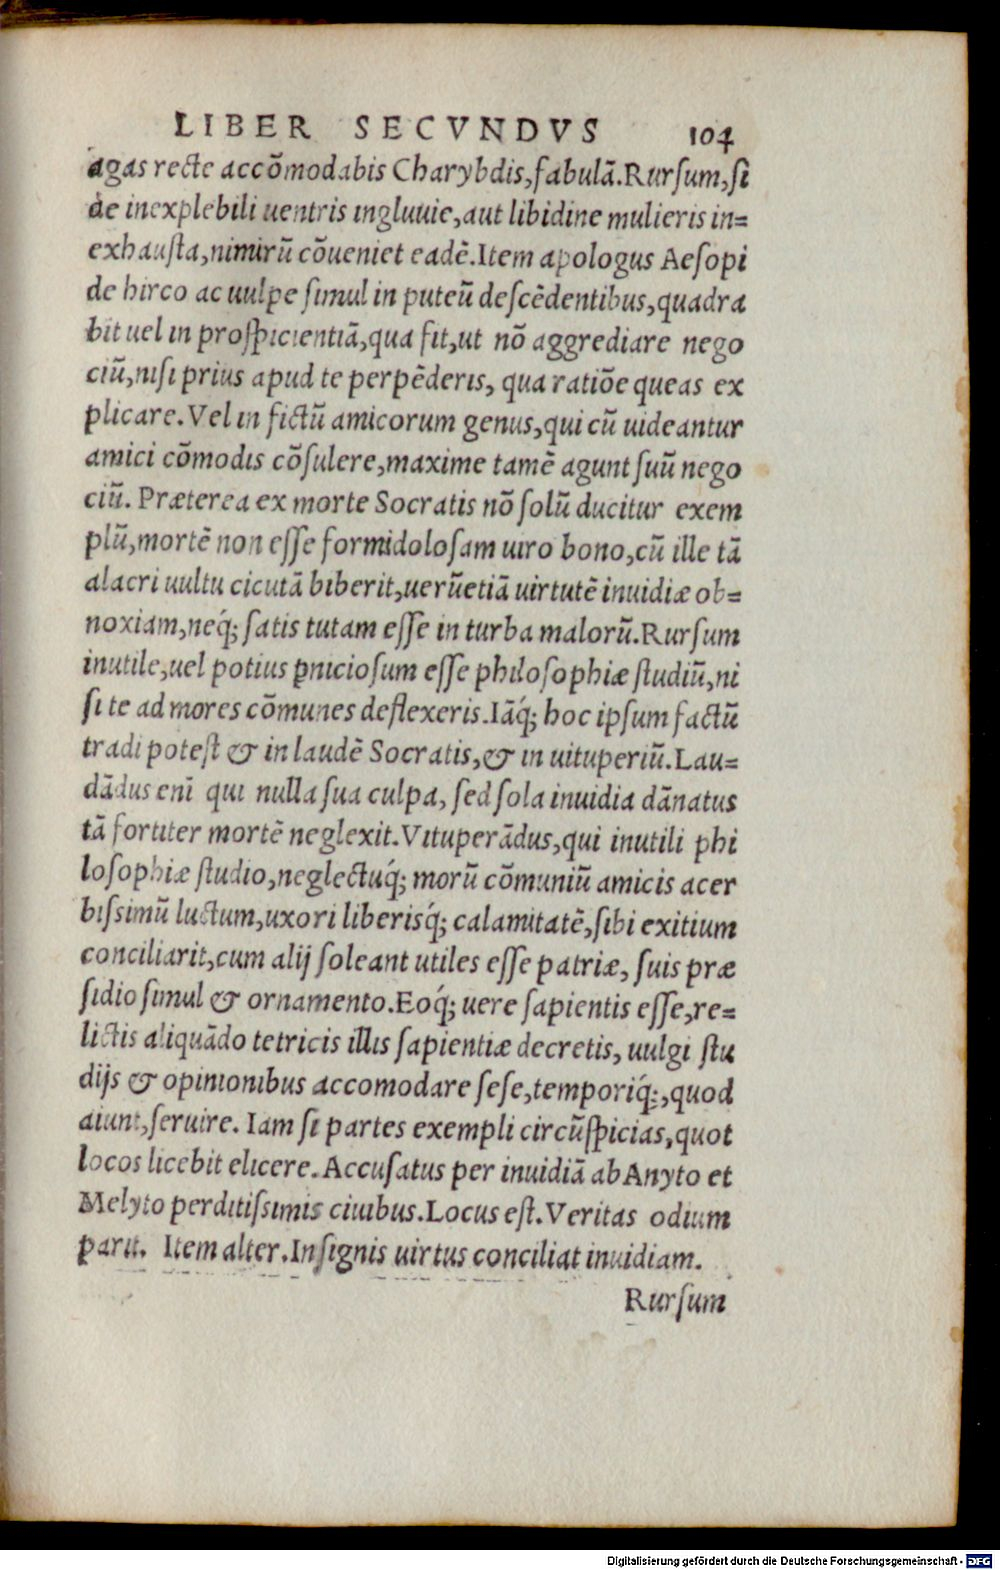 LIBER SECVNDVS 104
agas recte accõmodabis Charybdis, fabulã. Rursum, si
de inexplebili uentris ingluuie, aut libidine mulieris in=
exhausta, nimirũ cõueniet eadẽ. Item apologus Aesopi
de hirco ac uulpe simul in puteũ descẽdentibus, quadra
bit uel in prospicientiã, qua fit, ut nõ aggrediare nego
ciũ, nisi prius apud te perpẽderis, qua ratiõe queas ex
plicare. Vel in fictũ amicorum genus, qui cũ uideantur
amici cõmodis cõsulere, maxime tamẽ agunt suũ nego
ciũ. Præterea ex morte Socratis nõ solũ ducitur exem
plũ, mortẽ non esse formidolosam uiro bono, cũ ille tã
alacri uultu cicutã biberit, uerũetiã uirtutẽ inuidiæ ob=
noxiam, neq́; satis tutam esse in turba malorũ. Rursum
inutile, uel potius ꝑniciosum esse philosophiæ studiũ, ni
si te ad mores cõmunes deflexeris. Iãq́; hoc ipsum factũ
tradi potest & in laudẽ Socratis, & in uituperiũ. Lau=
dãdus enĩ qui nulla sua culpa, sed sola inuidia dãnatus
tã fortiter mortẽ neglexit. Vituperãdus, qui inutili phi
losophiæ studio, neglectuq́; morũ cõmuniũ amicis acer
bissimũ luctum, uxori liberisq́; calamitatẽ, sibi exitium
conciliarit, cum alij soleant utiles esse patriæ, suis præ
sidio simul & ornamento. Eoq́; uere sapientis esse, re=
lictis aliquãdo tetricis illis sapientiæ decretis, uulgi stu
dijs & opinionibus accomodare sese, temporiq́;, quod
aiunt, seruire. Iam si partes exempli circũspicias, quot
locos licebit elicere. Accusatus per inuidiã ab Anyto et
Melyto perditissimis ciuibus. Locus est. Veritas odium
parit. Item alter. Insignis uirtus conciliat inuidiam.
Rursum
Digitalisierung gefördert durch die Deutsche Forschungsgemeinschaft - DFG